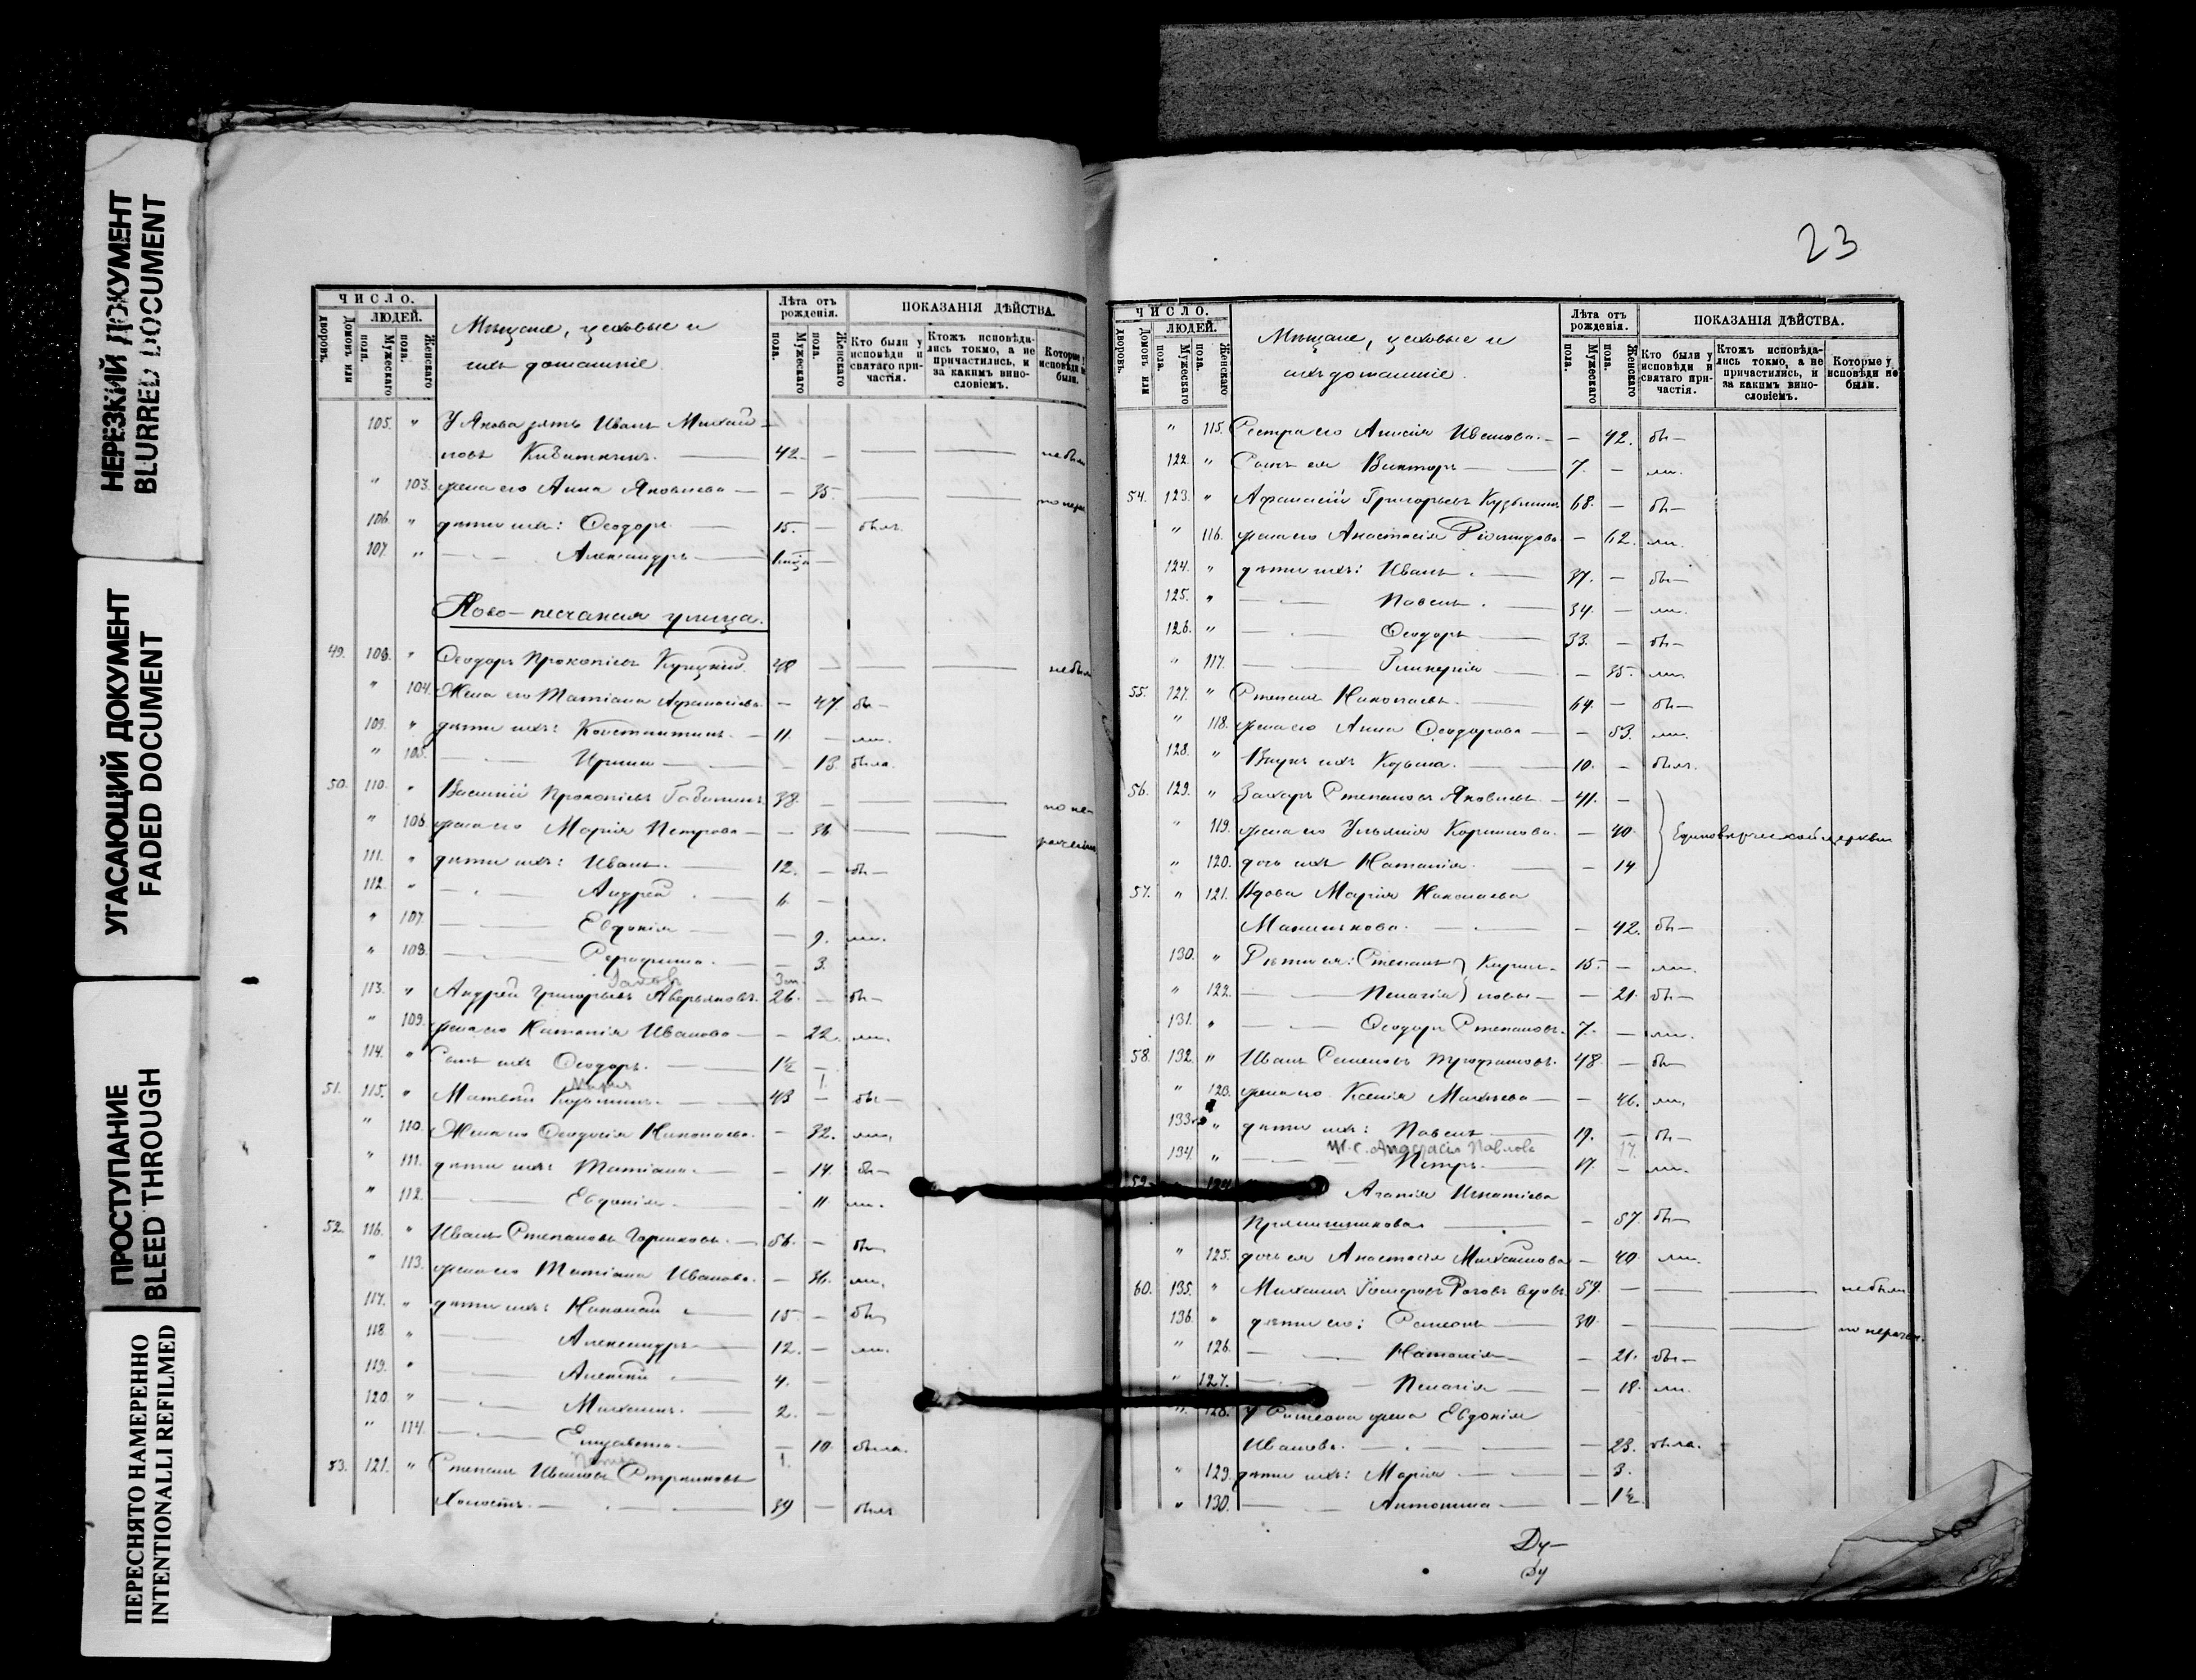 НЕРЕЗКИЙ ДОКУМЕНТ
BLURRED DOCUMENT
УГАСАЮЩИЙ ДОКУМЕНТ
FADED DOCUMENT
ПРОСТУПАНИЕ
BLEED THROUGH
ПЕРЕСНЯТО НАМЕРЕННО
INTENTIONALLI REFILMED
ЧИСЛО.
Домовъ или дворовъ.
ЛЮДЕЙ.
Мужескаго пола.
Женскаго пола.
Мѣщане, цеховые и
ихъ домашніе.
Лѣта отъ рожденія.
Мужескаго пола.
Женскаго пола.
ПОКАЗАНІЯ ДѢЙСТВА.
Кто были у исповѣди и святаго причастія.
Ктожъ исповѣдались токмо, а не причастились, и за какимъ винословіемъ.
Которые у исповѣди не были.
105. " У Якова зять Иванъ Михай-
ловъ 42. — — — небыли
" 103. жена его Анна Яковлева — — 35. — —
106. " дѣти ихъ: Ѳеодоръ — 15. — былъ
107. " — Александръ —
Ново-песчаная улица.
49. 108. " Ѳеодоръ Прокопіевъ 48 — — — небыли
" 104. Жена его Татіана Афанасіева — 47. бы—
109. " дѣти ихъ: Константинъ — 11. — ли.
" 105. — Ирина — — 13. была.
50. 110. " Василій Прокопіевъ 38. — — — по не-
" 106. жена его Марія Петрова — — 36 — — раченію
111. " дѣти ихъ: Иванъ — 12. — бы—
112. " — Андрей — 6. —
" 107 — Евдокія — — 9. ли.
" 108. — — 3.
113. " Андрей Григорьевъ Аверьяновъ. 26. — бы—
" 109. жена его Наталія Иванова — — 22. ли.
114. " Сынъ ихъ Ѳеодоръ — 1½ —
Марія 1.
51. 115. " Матвѣй Козьминъ — 43 — бы—
" 110. Жена его Ѳеодосія Николаева — 32. ли.
" 111. дѣти ихъ Татіана — — 14. бы—
" 112. — Евдокія — — 11 ли.
52. 116. " Иванъ Степановъ Горшковъ — 56. — бы—
" 113. жена его Татіана Иванова — 36. ли.
117. " дѣти ихъ: Николай — 15. — бы—
118. " — Александръ — 12. — ли.
119. " — Алексѣй — 4. —
120. " — Михаилъ — 2. —
" 114. — Елизавета — — 10. была.
53. 121. " Степанъ Ивановъ
Холостъ — 39 — былъ
23
ЧИСЛО.
Домовъ или дворовъ.
ЛЮДЕЙ.
Мужескаго пола.
Женскаго пола.
Мѣщане, цеховые и
ихъ домашніе.
Лѣта отъ рожденія.
Мужескаго пола.
Женскаго пола.
ПОКАЗАНІЯ ДѢЙСТВА.
Кто были у исповѣди и святаго причастія.
Ктожъ исповѣдались токмо, а не причастились, и за какимъ винословіемъ.
Которые у исповѣди не были.
" 115. Сестра его Анисія Иванова — — 42. бы—
122. " Сынъ ея Викторъ — 7. — ли.
54. 123. " Афанасій Григорьевъ Кузьминъ 68. — бы—
" 116. жена его Анастасія — 62. ли.
124. " дѣти ихъ: Иванъ — 37. — бы—
125. " — Павелъ — 34. — ли.
126. " — Ѳеодоръ — 33. — бы—
" 117. — Гликерія — 35. ли.
55. 127. " Степанъ Николаевъ — 64. — бы—
" 118. жена его Анна Ѳеодорова — — 53. ли.
128. " Внукъ ихъ Козьма — 10. — былъ.
56. 129. " Захаръ Степановъ Яковлевъ — 41. —
" 119. жена его Ульянія — 40. Единовѣрческой церкви
" 120. дочь ихъ Наталія — — 14
57. " 121. Вдова Марія Николаева
— 42. бы—
130. " Дѣти ея: Степанъ } Кирил- 15. — ли.
" 122. — Пелагія } ловы — — 21. бы—
131. " — Ѳеодоръ Степановъ. 7. — ли.
58. 132. " Иванъ Семеновъ Трофимовъ. 48 — бы—
" 123. жена его Ксенія — — 46. ли.
133. " дѣти ихъ: Павелъ — 19. — бы—
Анастасія Павлова 17.
134. " — Петръ — 17. — ли.
59. 124. Агапія Игнатіева
Прянишникова — — 57. бы—
" 125. дочь ея Анастасія Михайлова — 40. ли.
60. 135. " Михаилъ вдовъ 59. — — — небыли
136. " дѣти его: Симеонъ — 30. — — — по нерачен.
" 126. — Наталія — — 21. бы—
" 127. — Пелагія — — 18. ли.
" 128. У Симеона жена Евдокія
Иванова — — 23. была.
" 129. дѣти ихъ: Марія — — 3.
" 130. — Антонина — — 1½.